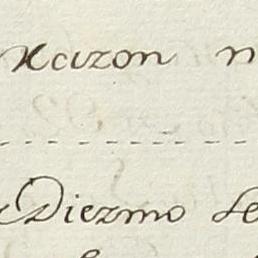 Razon n
Diezmo se